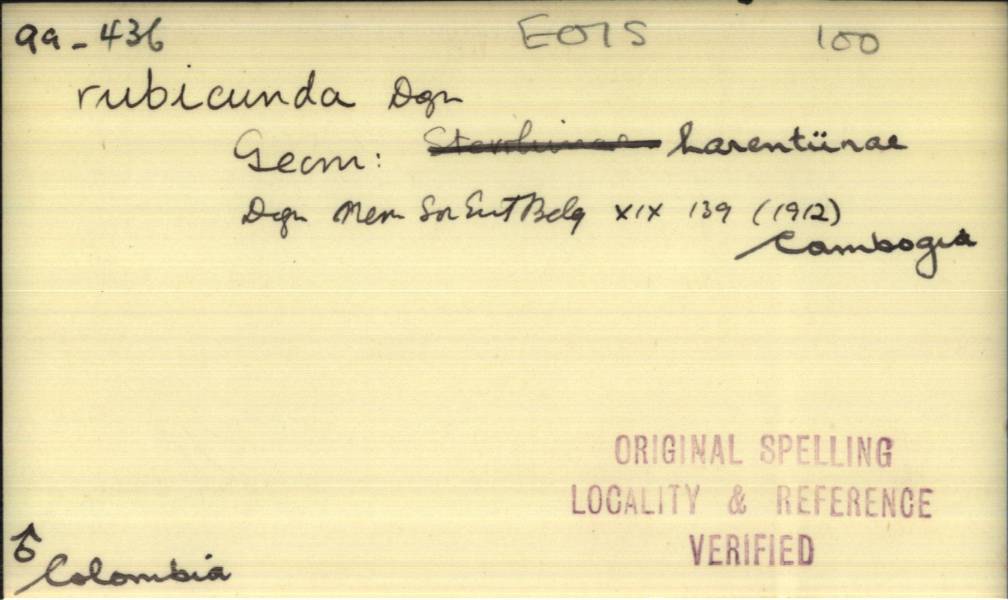 99-436 EOIS 100
rubicunda Dgn
Geom: Sterrhinae Larentiinae
Dgn Mem Soc Ent Belg XIX 139 (1912)
Cambogia
ORIGINAL SPELLING
LOCALITY & REFERENCE
VERIFIED
♂
Colombia